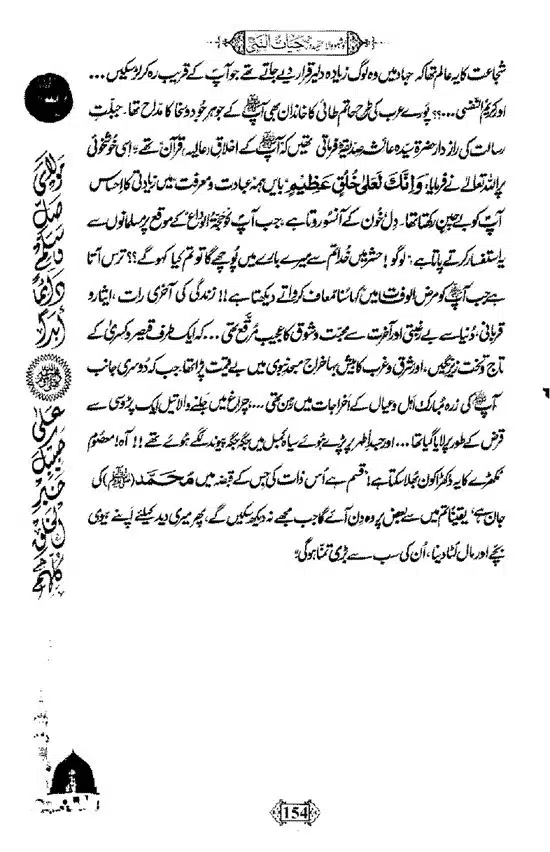 حیات النبی ﷺ
شجاعت کا یہ عالم تھا کہ جہاد میں وہ لوگ زیادہ دلیر قرار دیے جاتے تھے جو آپؐ کے قریب رہ کر لڑ سکیں...
اور کریم النفسی...؟؟ پورے عرب کی طرح حاتم طائی کا خاندان بھی آپ ﷺ کے جوہرِ جُود و سخا کا مداح تھا۔ جبلّتِ
رسالت کی راز دار حضرۃ سیدہ عائشہ صدیقہؓ فرماتی تھیں کہ آپ ﷺ کے اخلاقِ (عالیہ) قرآن تھے؛ اِسی خُوشخوئی
پر اللہ تعالٰی نے فرمایا، وَإِنَّكَ لَعَلىٰ خُلُقٍ عَظِيْمٍ بایں ہمہ عبادت و معرفت میں زیادتی کا احساس
آپؐ کو بے چین رکھتا تھا۔ دِل خُون کے آنسو روتا ہے، جب آپؐ کو حجۃ الوَداع کے موقع پر مسلمانوں سے
یہ استفسار کرتے پاتا ہے؛ لوگو! حشر میں خُدا تم سے میرے بارے میں پُوچھے گا تو تم کیا کہو گے؟؟ ترس آتا
ہے جب آپ ﷺ کو مرض الوفت میں کہا سُنا معاف کرواتے دیکھتا ہے!! زندگی کی آخری رات، ایثار و
قربانی، دُنیا سے بے رغبتی اور آخرت سے محبت و شوق کا عجیب مُرقّع تھی... کہ ایک طرف قیصر و کسریٰ کے
تاج و تخت زیرِ نگیں، اور شرق و غرب کا بیش بہا خراج مسجدِ نبوی میں بے قیمت پڑا تھا، جب کہ دُوسری جانب
آپ ﷺ کی زرہ مُبارک اہل و عیال کے اخراجات میں رہن تھی...، چراغ میں جلنے والا تیل ایک پڑوسی سے
قرض کے طور پر لایا گیا تھا... اور جسدِ اطہر پر پڑے ہُوئے سیاہ کمبل میں جگہ جگہ پیوند لگے ہُوئے تھے!! آہ! معصُوم
مُکھڑے کا یہ دُکھڑا کون بُھلا سکتا ہے! 'قسم ہے اُس ذات کی جس کے قبضہ میں مُحمَّد (ﷺ) کی
جان ہے، یقیناً تم میں سے بعض پر وہ دِن آئے گا جب مجھے نہ دیکھ سکیں گے، پھر میری دید کیلئے اپنے بیوی
بچے اور مال لُٹا دینا، اُن کی سب سے بڑی تمنا ہوگی'؛
مَوْلَايَ صَلِّ وَسَلِّمْ دَائِمًا أَبَدًا
ﷺ
عَلىٰ حَبِيْبِكَ خَيْرِ الْخَلْقِ كُلِّهِمِ
154